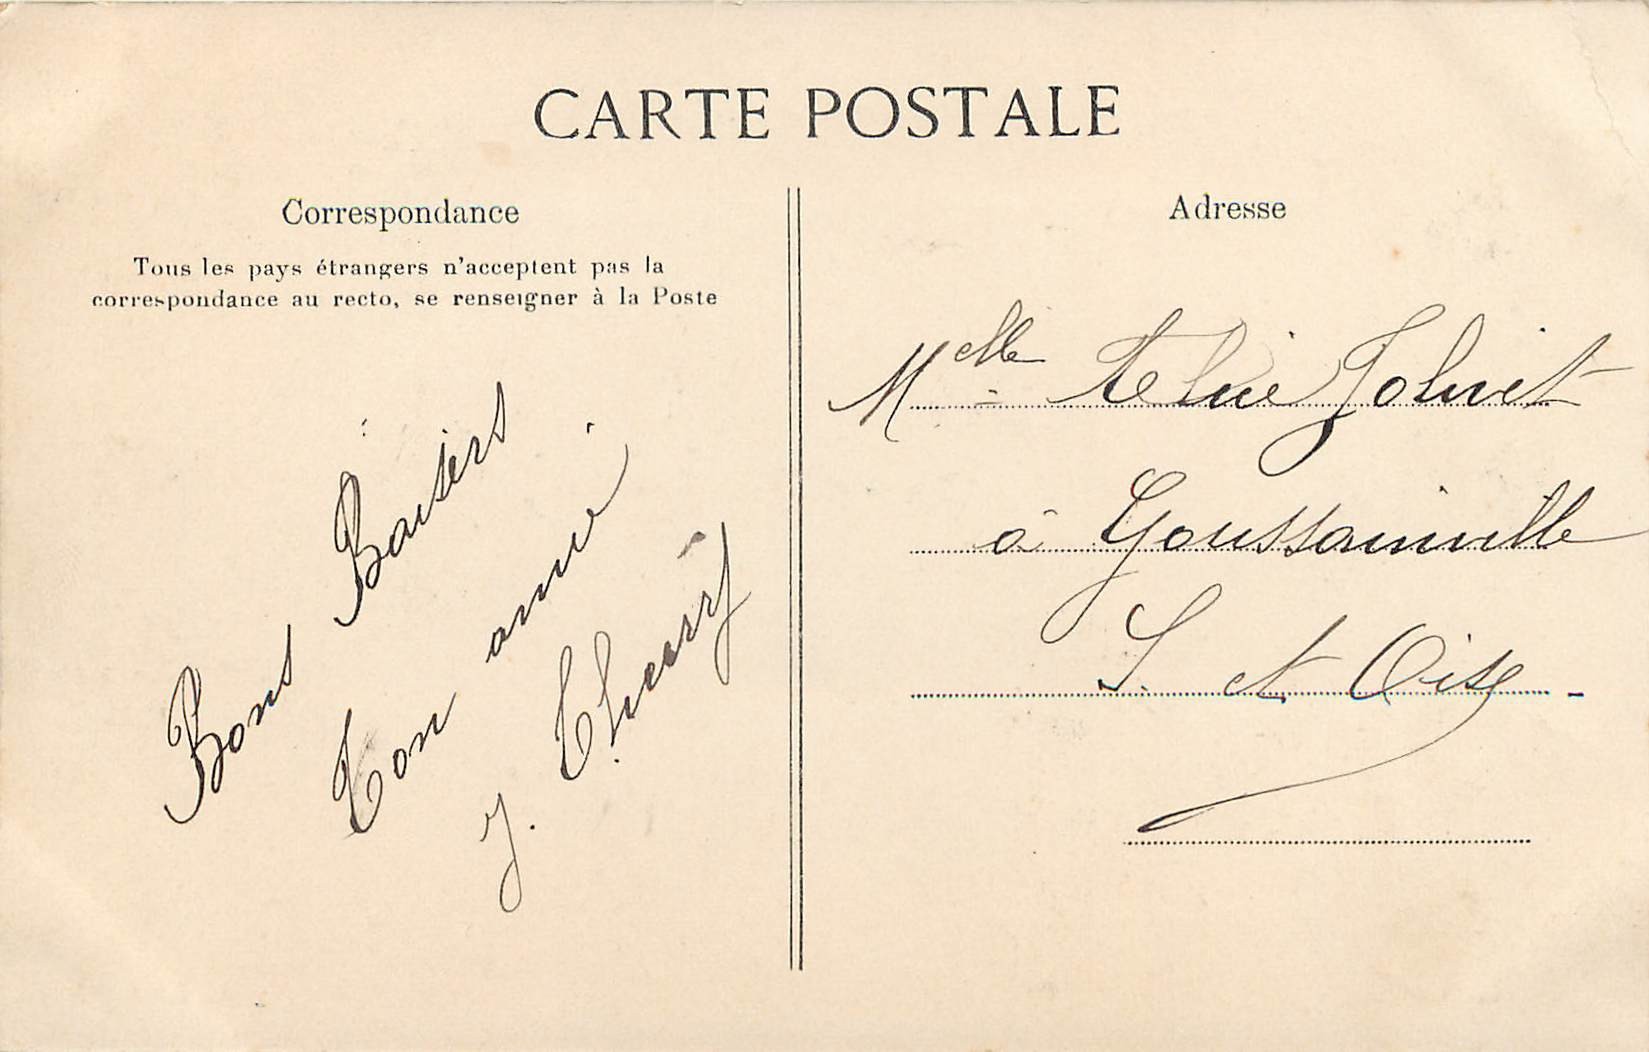 CARTE POSTALE
Correspondance
Tous les pays étrangers n'acceptent pas la
correspondance au recto, se renseigner à la Poste
Bons Baisers
Ton amie
J. Thierry
Adresse
Melle Jolivet
à Goussainville
S. et Oise